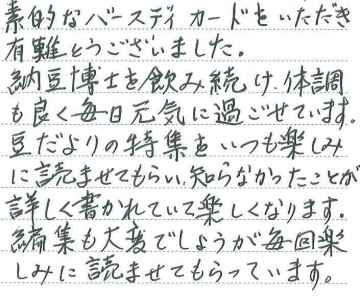 素的なバースディカードをいただき
有難とうございました。
納豆博士を飲み続け、体調
も良く毎日元気に過ごせています。
豆だよりの特集をいつも楽しみ
に読ませてもらい、知らなかったことが
詳しく書かれていて楽しくなります。
編集も大変でしょうが毎回楽
しみに読ませてもらっています。